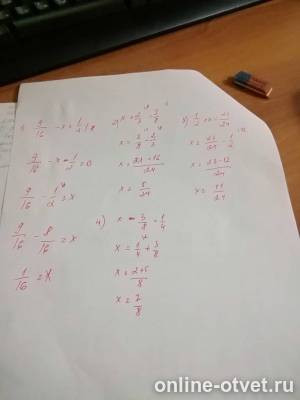 1) 9/16 - x = 1/2
9/16 - x - 1/2 = 0
9/16 - 1/2 = x
9/16 - 8/16 = x
1/16 = x
2) x + 2/3 = 7/8
x = 7/8 - 2/3
x = 21-16/24
x = 5/24
3) 1/2 + x = 23/24
x = 23/24 - 1/2
x = 23-12/24
x = 11/24
4) x - 5/8 = 1/4
x = 1/4 + 5/8
x = 2+5/8
x = 7/8
online-otvet.ru